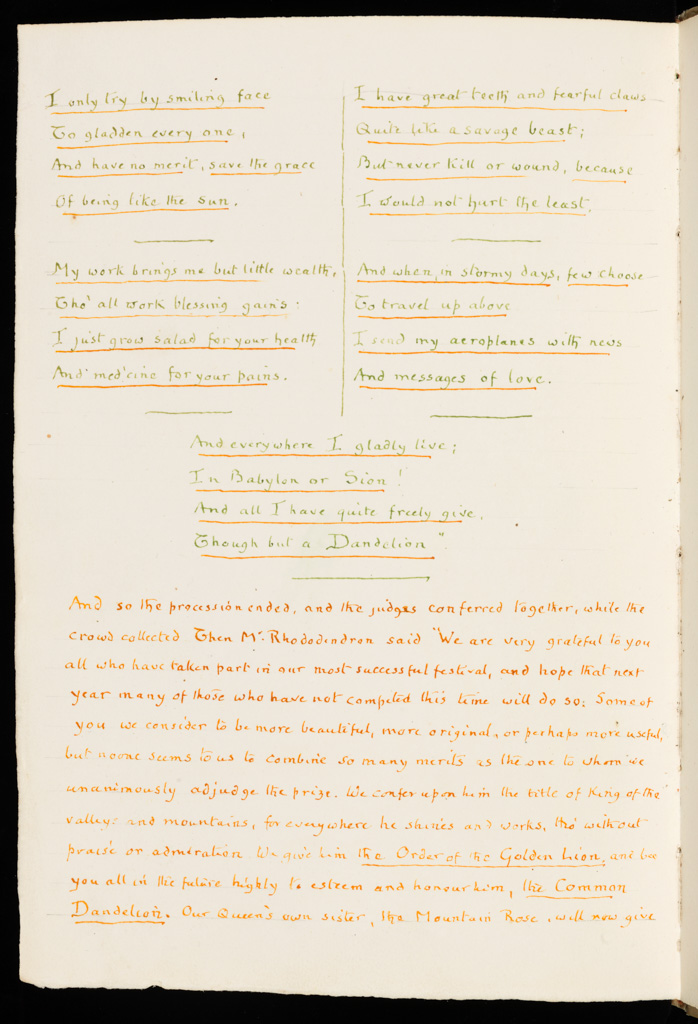 I only try by smiling face
To gladden every one,
And have no merit, save the grace
Of being like the sun.
My work brings me but little wealth,
Tho' all work blessing gains:
I just grow salad for your health
And med'cine for your pains.
I have great teeth and fearful claws
Quite like a savage beast;
But never kill or wound, because
I would not hurt the least.
And when, in stormy days, few choose
To travel up above
I send my aeroplanes with news
And messages of love.
And everywhere I gladly live;
In Babylon or Sion!
And all I have quite freely give,
Though but a Dandelion".
And so the procession ended, and the judges conferred together, while the
crowd collected Then Mr. Rhododendron said "We are very grateful to you
all who have taken part in our most successful festival, and hope that next
year many of those who have not competed this time will do so: Some of
you we consider to be more beautiful, more original, or perhaps more useful,
but no one seems to us to combine so many merits as the one to whom we
unanimously adjudge the prize. We confer upon him the title of King of the
valleys and mountains, for everywhere he shines and works, tho' without
praise or admiration We give him the Order of the Golden Lion, and bee
you all in the future highly to esteem and honour him, the Common
Dandelion. Our Queen's own sister, the Mountain Rose, will now give